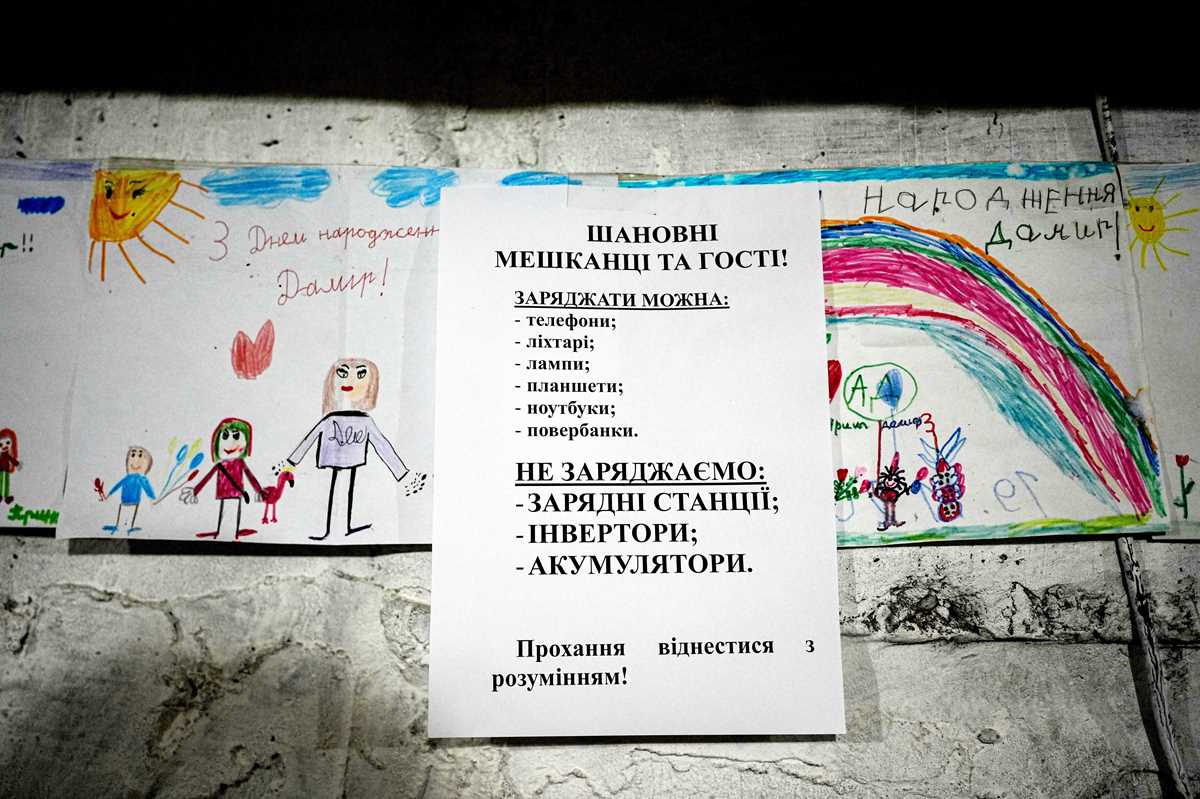 З Днем народженн
Дамір!
ШАНОВНІ
МЕШКАНЦІ ТА ГОСТІ!
ЗАРЯДЖАТИ МОЖНА:
- телефони;
- ліхтарі;
- лампи;
- планшети;
- ноутбуки;
- повербанки.
НЕ ЗАРЯДЖАЄМО:
- ЗАРЯДНІ СТАНЦІЇ;
- ІНВЕРТОРИ;
- АКУМУЛЯТОРИ.
Прохання віднестися з
розумінням!
НАРОДЖЕННЯ
Дамир!